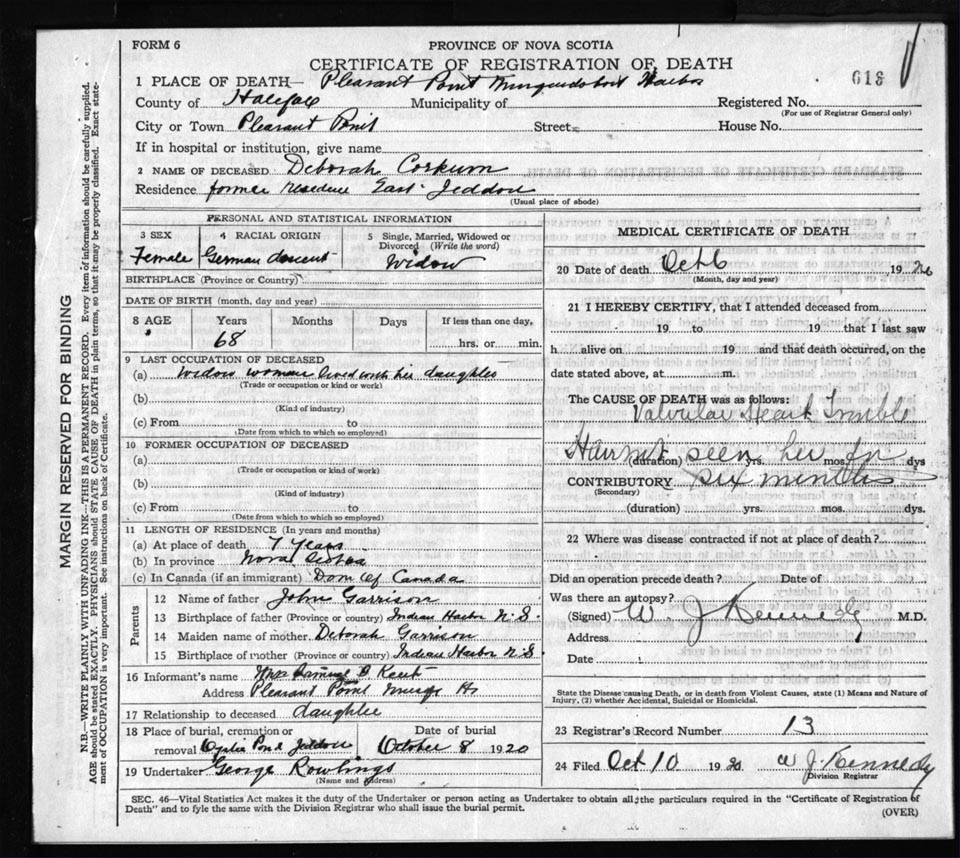 FORM 6
PROVINCE OF NOVA SCOTIA
CERTIFICATE OF REGISTRATION OF DEATH
018
1 PLACE OF DEATH— Pleasant Point Musquodoboit Harbor
County of Halifax Municipality of Registered No.
(For use of Registrar General only)
City or Town Pleasant Point Street House No.
If in hospital or institution, give name
2 NAME OF DECEASED Deborah Corkum
Residence former residence East Jeddore
(Usual place of abode)
PERSONAL AND STATISTICAL INFORMATION
3 SEX 4 RACIAL ORIGIN 5 Single, Married, Widowed or
Divorced (Write the word)
Female German descent Widow
BIRTHPLACE (Province or Country)
DATE OF BIRTH (month, day and year)
8 AGE Years Months Days If less than one day,
68 hrs. or min.
9 LAST OCCUPATION OF DECEASED
(a) widow woman lived with her daughter
(Trade or occupation or kind or work)
(b)
(Kind of industry)
(c) From to
(Date from which to which so employed)
10 FORMER OCCUPATION OF DECEASED
(a)
(Trade or occupation or kind or work)
(b)
(Kind of industry)
(c) From to
(Date from which to which so employed)
11 LENGTH OF RESIDENCE (In years and months)
(a) At place of death 7 Years
(b) In province Nova Scotia
(c) In Canada (if an immigrant) Dom of Canada
Parents
12 Name of father John Garrison
13 Birthplace of father (Province or country) Indian Harbor N.S.
14 Maiden name of mother Deborah Garrison
15 Birthplace of mother (Province or country) Indian Harbor N.S.
16 Informant's name Mrs Samuel B Kent
Address Pleasant Point Musqu Hr
17 Relationship to deceased daughter
18 Place of burial, cremation or Date of burial
removal Oyster Pond Jeddore October 8 1920
19 Undertaker George Rowlings
(Name and address)
MEDICAL CERTIFICATE OF DEATH
20 Date of death Oct 6 19
(Month, day and year)
21 I HEREBY CERTIFY, that I attended deceased from
19 to 19 that I last saw
h alive on 19 and that death occurred, on the
date stated above, at m.
The CAUSE OF DEATH was as follows:
Valvular Heart Trouble
Have not seen her for
(duration) yrs. mos. dys
CONTRIBUTORY six months
(Secondary)
(duration) yrs. mos. dys.
22 Where was disease contracted if not at place of death?
Did an operation precede death? Date of
Was there an autopsy?
(Signed) W. J Kennedy M.D.
Address
Date
State the Disease causing Death, or in death from Violent Causes, state (1) Means and Nature of
Injury, (2) whether Accidental, Suicidal or Homicidal.
23 Registrar's Record Number 13
24 Filed Oct 10 1920 W J. Kennedy
Division Registrar
SEC. 46—Vital Statistics Act makes it the duty of the Undertaker or person acting as Undertaker to obtain all the particulars required in the "Certificate of Registration of
Death" and to fyle the same with the Division Registrar who shall issue the burial permit.
(OVER)
MARGIN RESERVED FOR BINDING
N.B.—WRITE PLAINLY WITH UNFADING INK—THIS IS A PERMANENT RECORD. Every item of information should be carefully supplied.
AGE should be stated EXACTLY. PHYSICIANS should STATE CAUSE OF DEATH in plain terms, so that it may be properly classified. Exact state-
ment of OCCUPATION is very important. See instructions on back of Certificate.